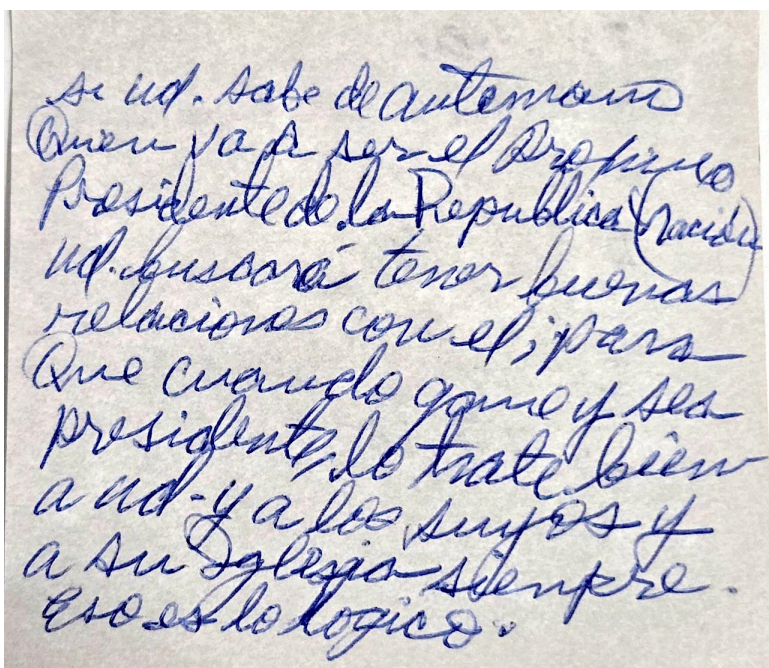 si ud. sabe de antemano
Quien va a ser el Proximo
Presidente de la Republica (nación)
ud. buscará tener buenas
relaciones con el; para
Que cuando gane y sea
presidente, lo trate bien
a ud-y a los suyos y
a su Iglesia siempre.
Eso es lo logico.